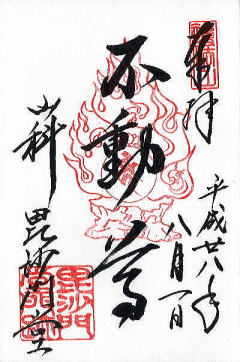 奉拝
平成廿八年
八月一日
不動尊
山科
毘沙門堂